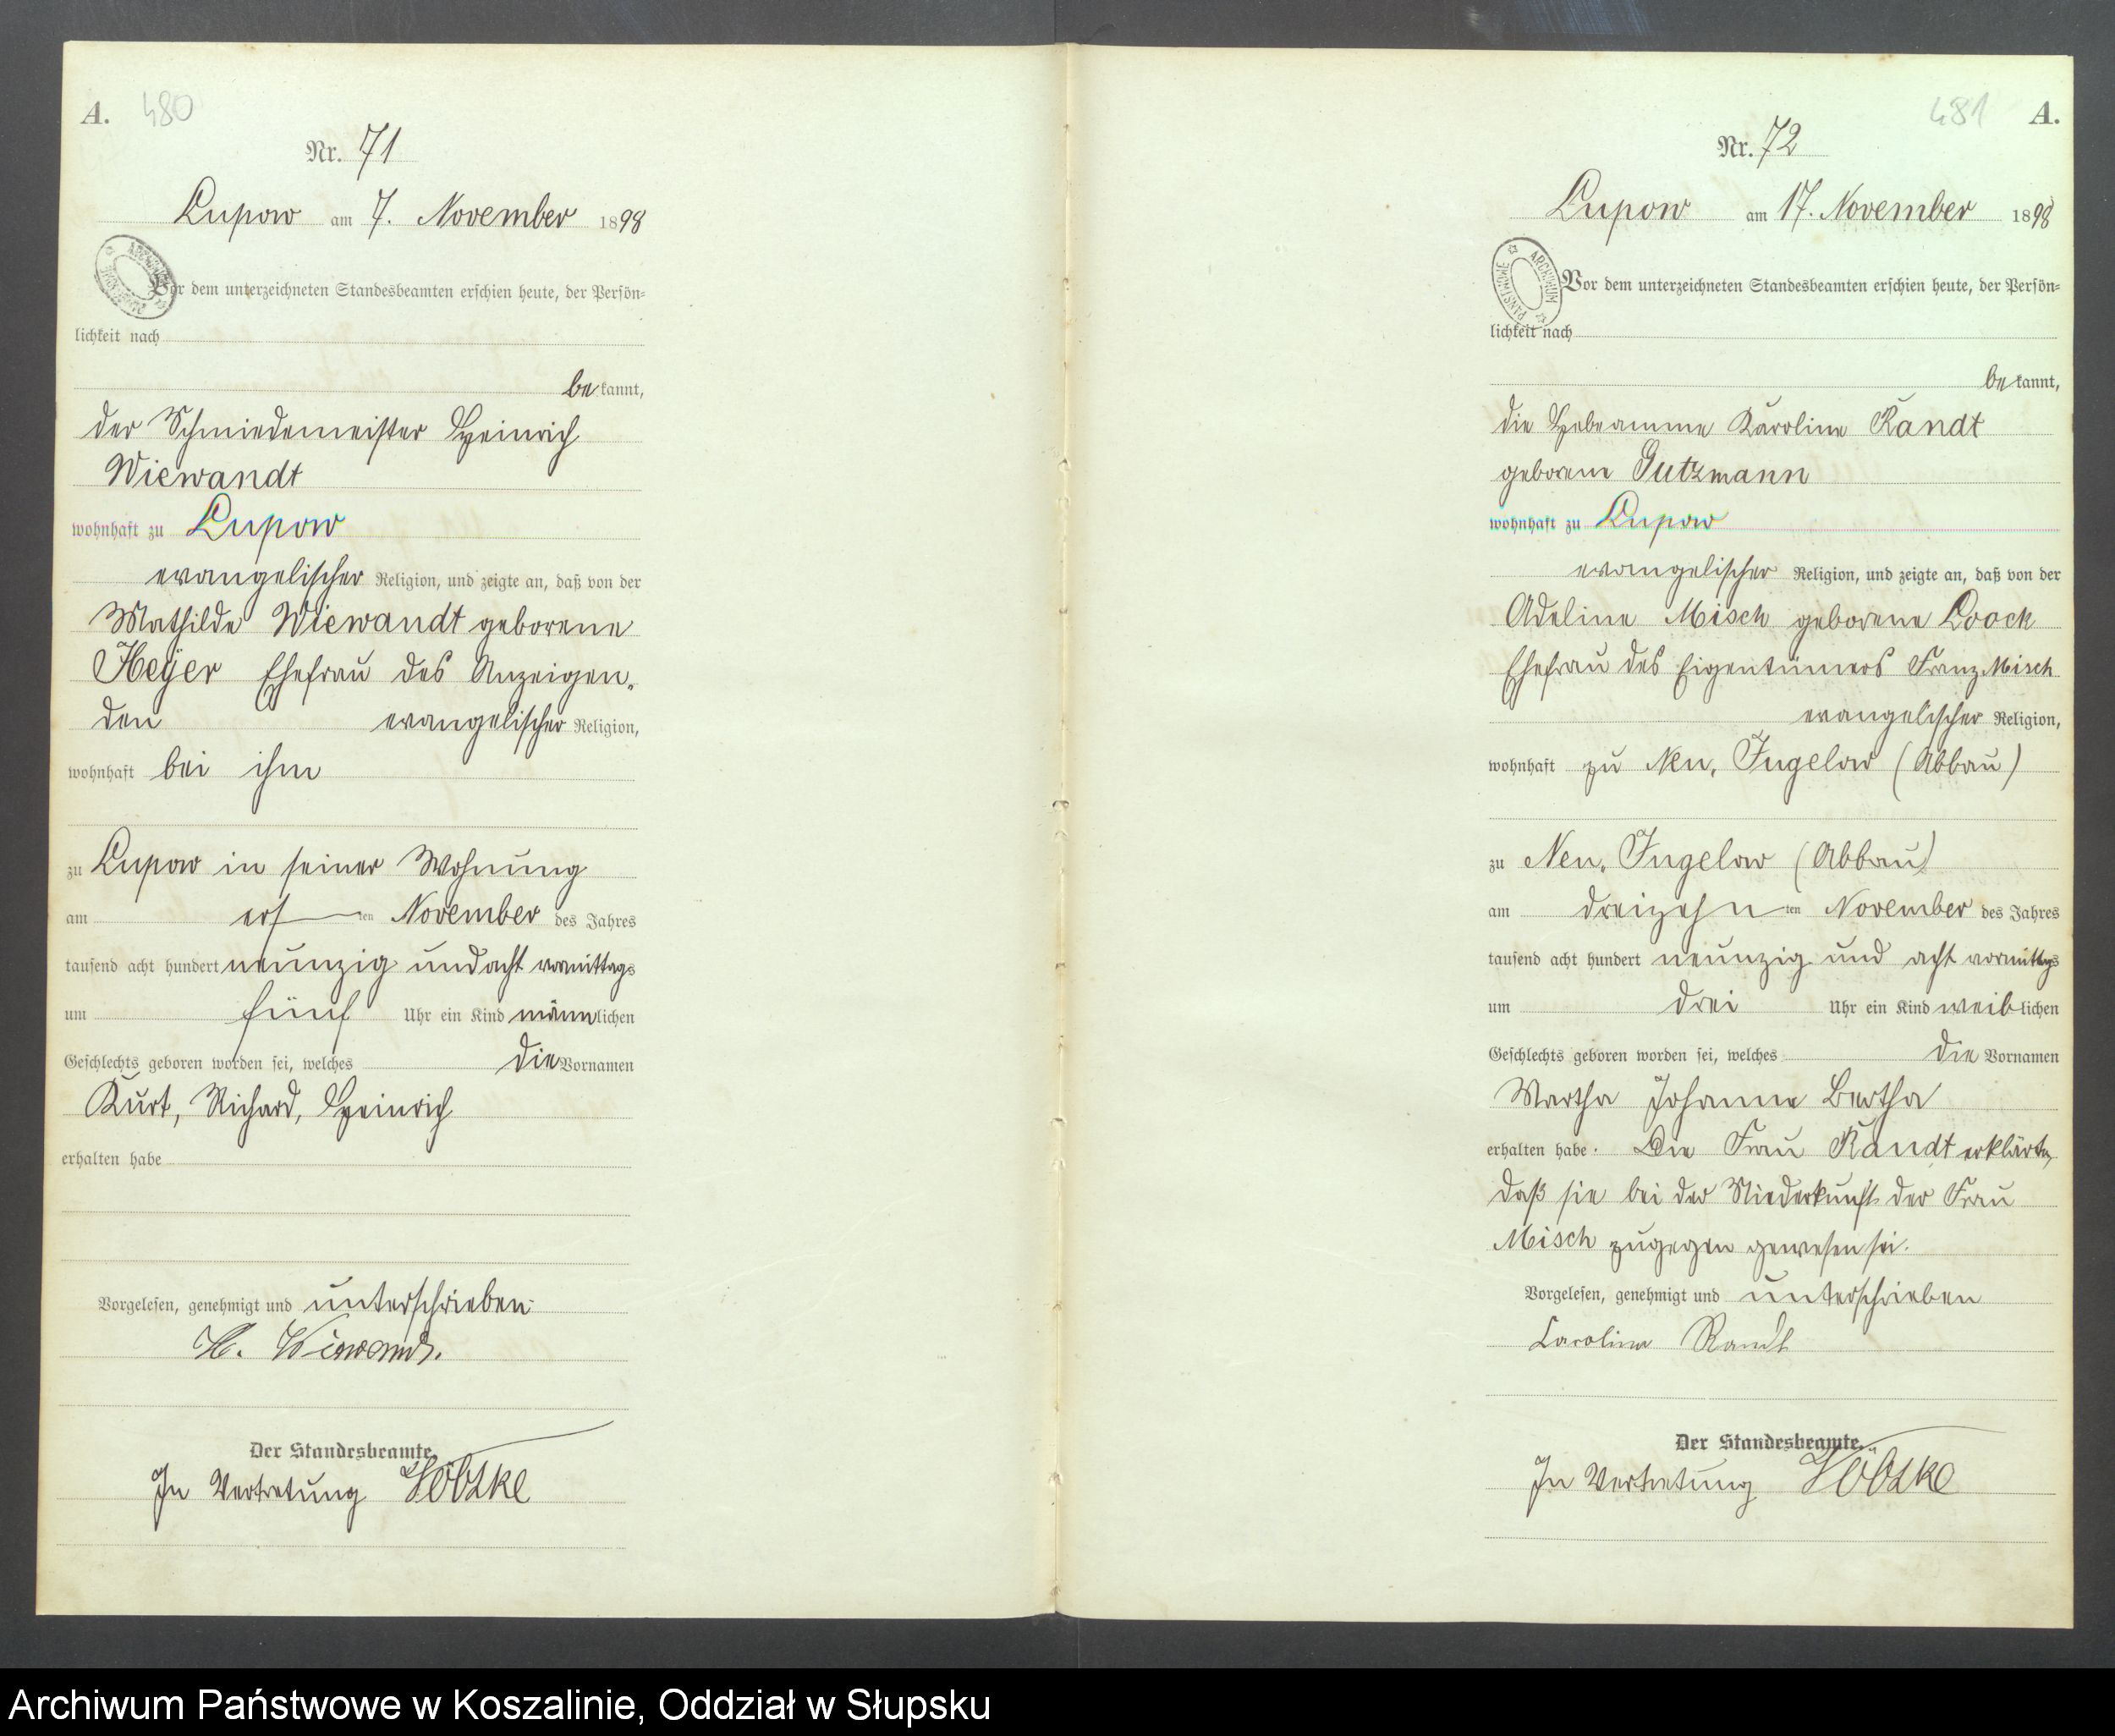 A. 480
Nr. 71
Lupow am 7. November 1898
Vor dem unterzeichneten Standesbeamten erschien heute, der Persön=
lichkeit nach
bekannt,
der Schmiedemeister Heinrich
Wiewandt
wohnhaft zu Lupow
evangelischer Religion, und zeigte an, daß von der
Mathilde Wiewandt geborene
Heyer Ehefrau des Anzeigen-
den evangelischer Religion,
wohnhaft bei ihm
zu Lupow in seiner Wohnung
am ten November des Jahres
tausend acht hundert neunzig und acht vormittags
um fünf Uhr ein Kind männlichen
Geschlechts geboren worden sei, welches die Vornamen
Kurt, Richard, Heinrich
erhalten habe
Vorgelesen, genehmigt und unterschrieben
H. Wiewandt.
Der Standesbeamte.
In Vertretung
481 A.
Nr. 72
Lupow am 17. November 1898
Vor dem unterzeichneten Standesbeamten erschien heute, der Persön=
lichkeit nach
bekannt,
die Hebeamme Karoline Randt
geborene Gutzmann
wohnhaft zu Lupow
evangelischer Religion, und zeigte an, daß von der
Adeline Misch geborene Loock
Ehefrau des Eigentümers Franz Misch
evangelischer Religion,
wohnhaft zu Neu, Jugelow (Abbau)
zu Neu, Jugelow (Abbau)
am dreizehnten November des Jahres
tausend acht hundert neunzig und acht vormittags
um drei Uhr ein Kind weiblichen
Geschlechts geboren worden sei, welches die Vornamen
Martha Johanne Bertha
erhalten habe. Die Frau Randt erklärte,
daß sie bei der Niederkunft der Frau
Misch zugegen gewesen sei.
Vorgelesen, genehmigt und unterschrieben
Caroline Randt
Der Standesbeamte.
In Vertretung
ARCHIWUM PAŃSTWOWE
Archiwum Państwowe w Koszalinie, Oddział w Słupsku